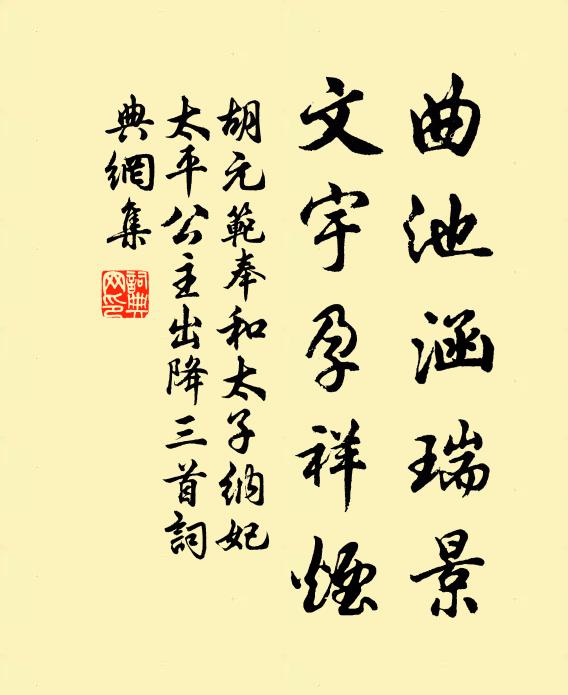 曲池涵瑞景
文宇孕祥煙
胡元範奉和太子納妃
太平公主出降三首詞
典網集
詞典
网印